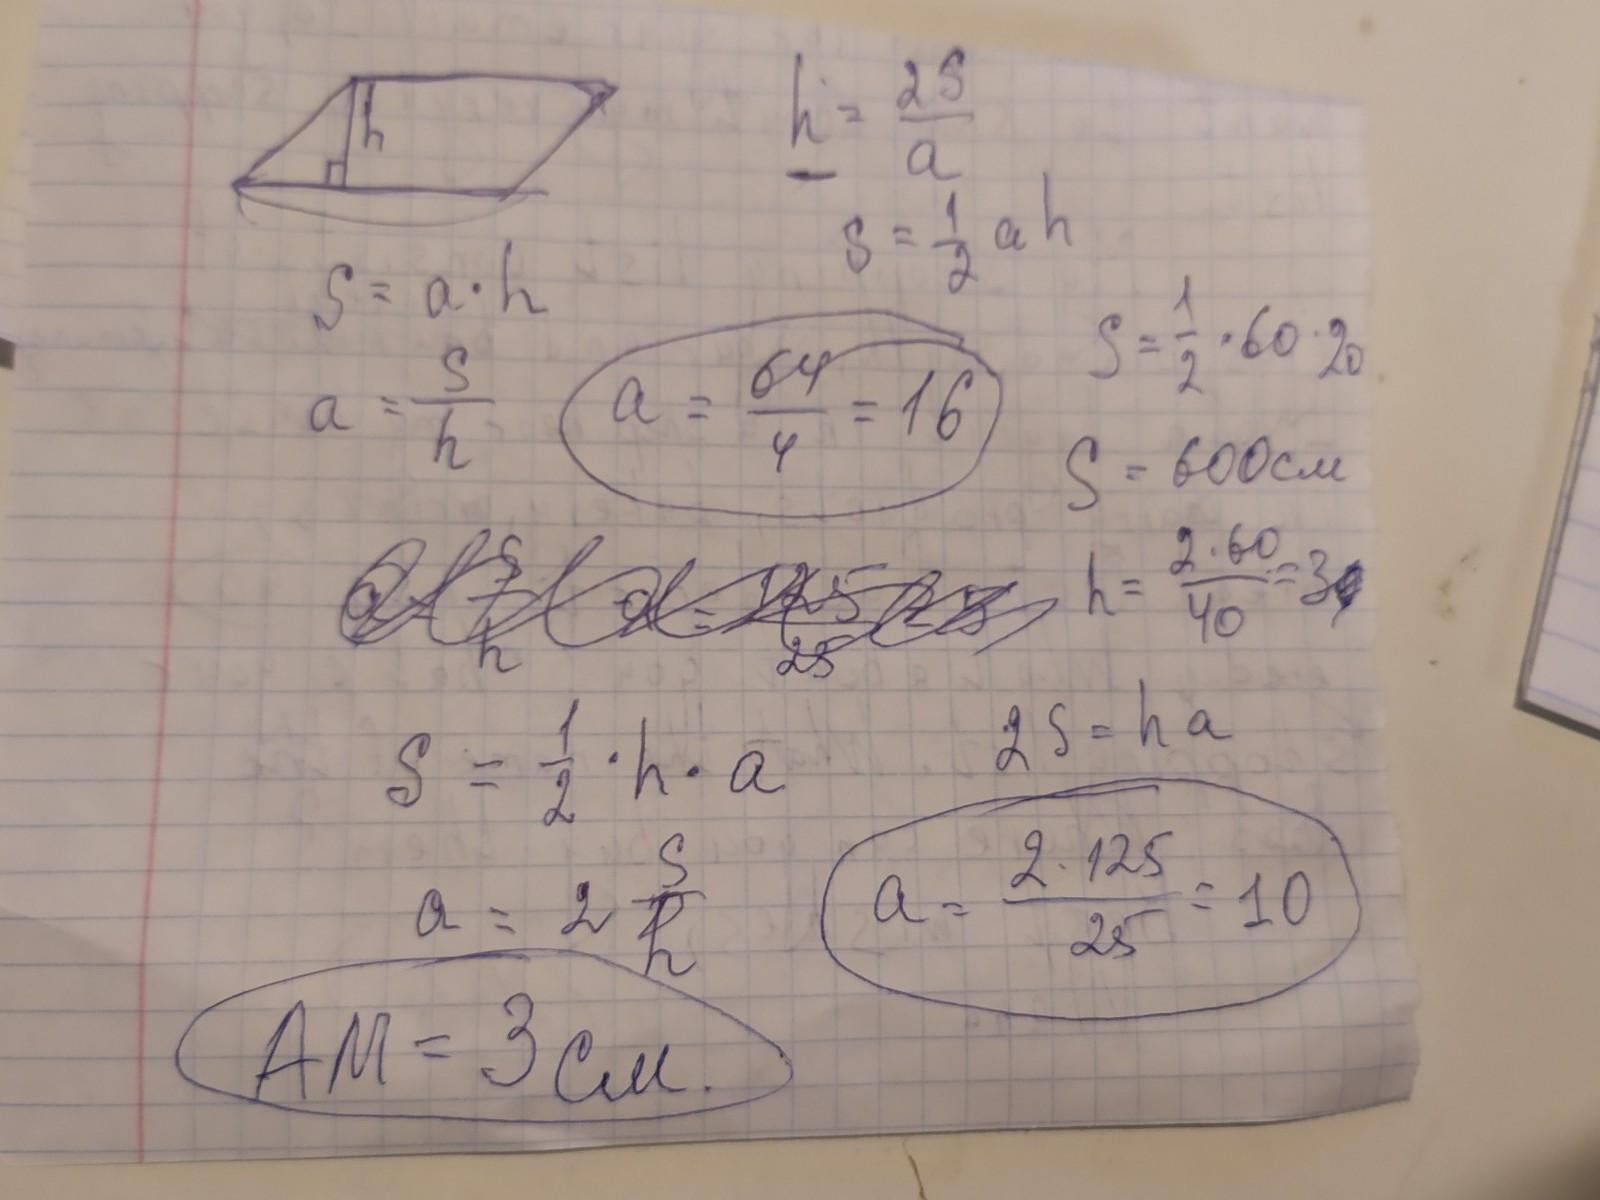 h
h = 2S/a
S = 1/2 a h
S = a · h
S = 1/2 · 60 · 20
a = S/h
a = 64/4 = 16
S = 600см
h = 2·60/40 = 3
S = 1/2 · h · a
2S = h a
a = 2 S/h
a = 2·125/25 = 10
AM = 3 см.